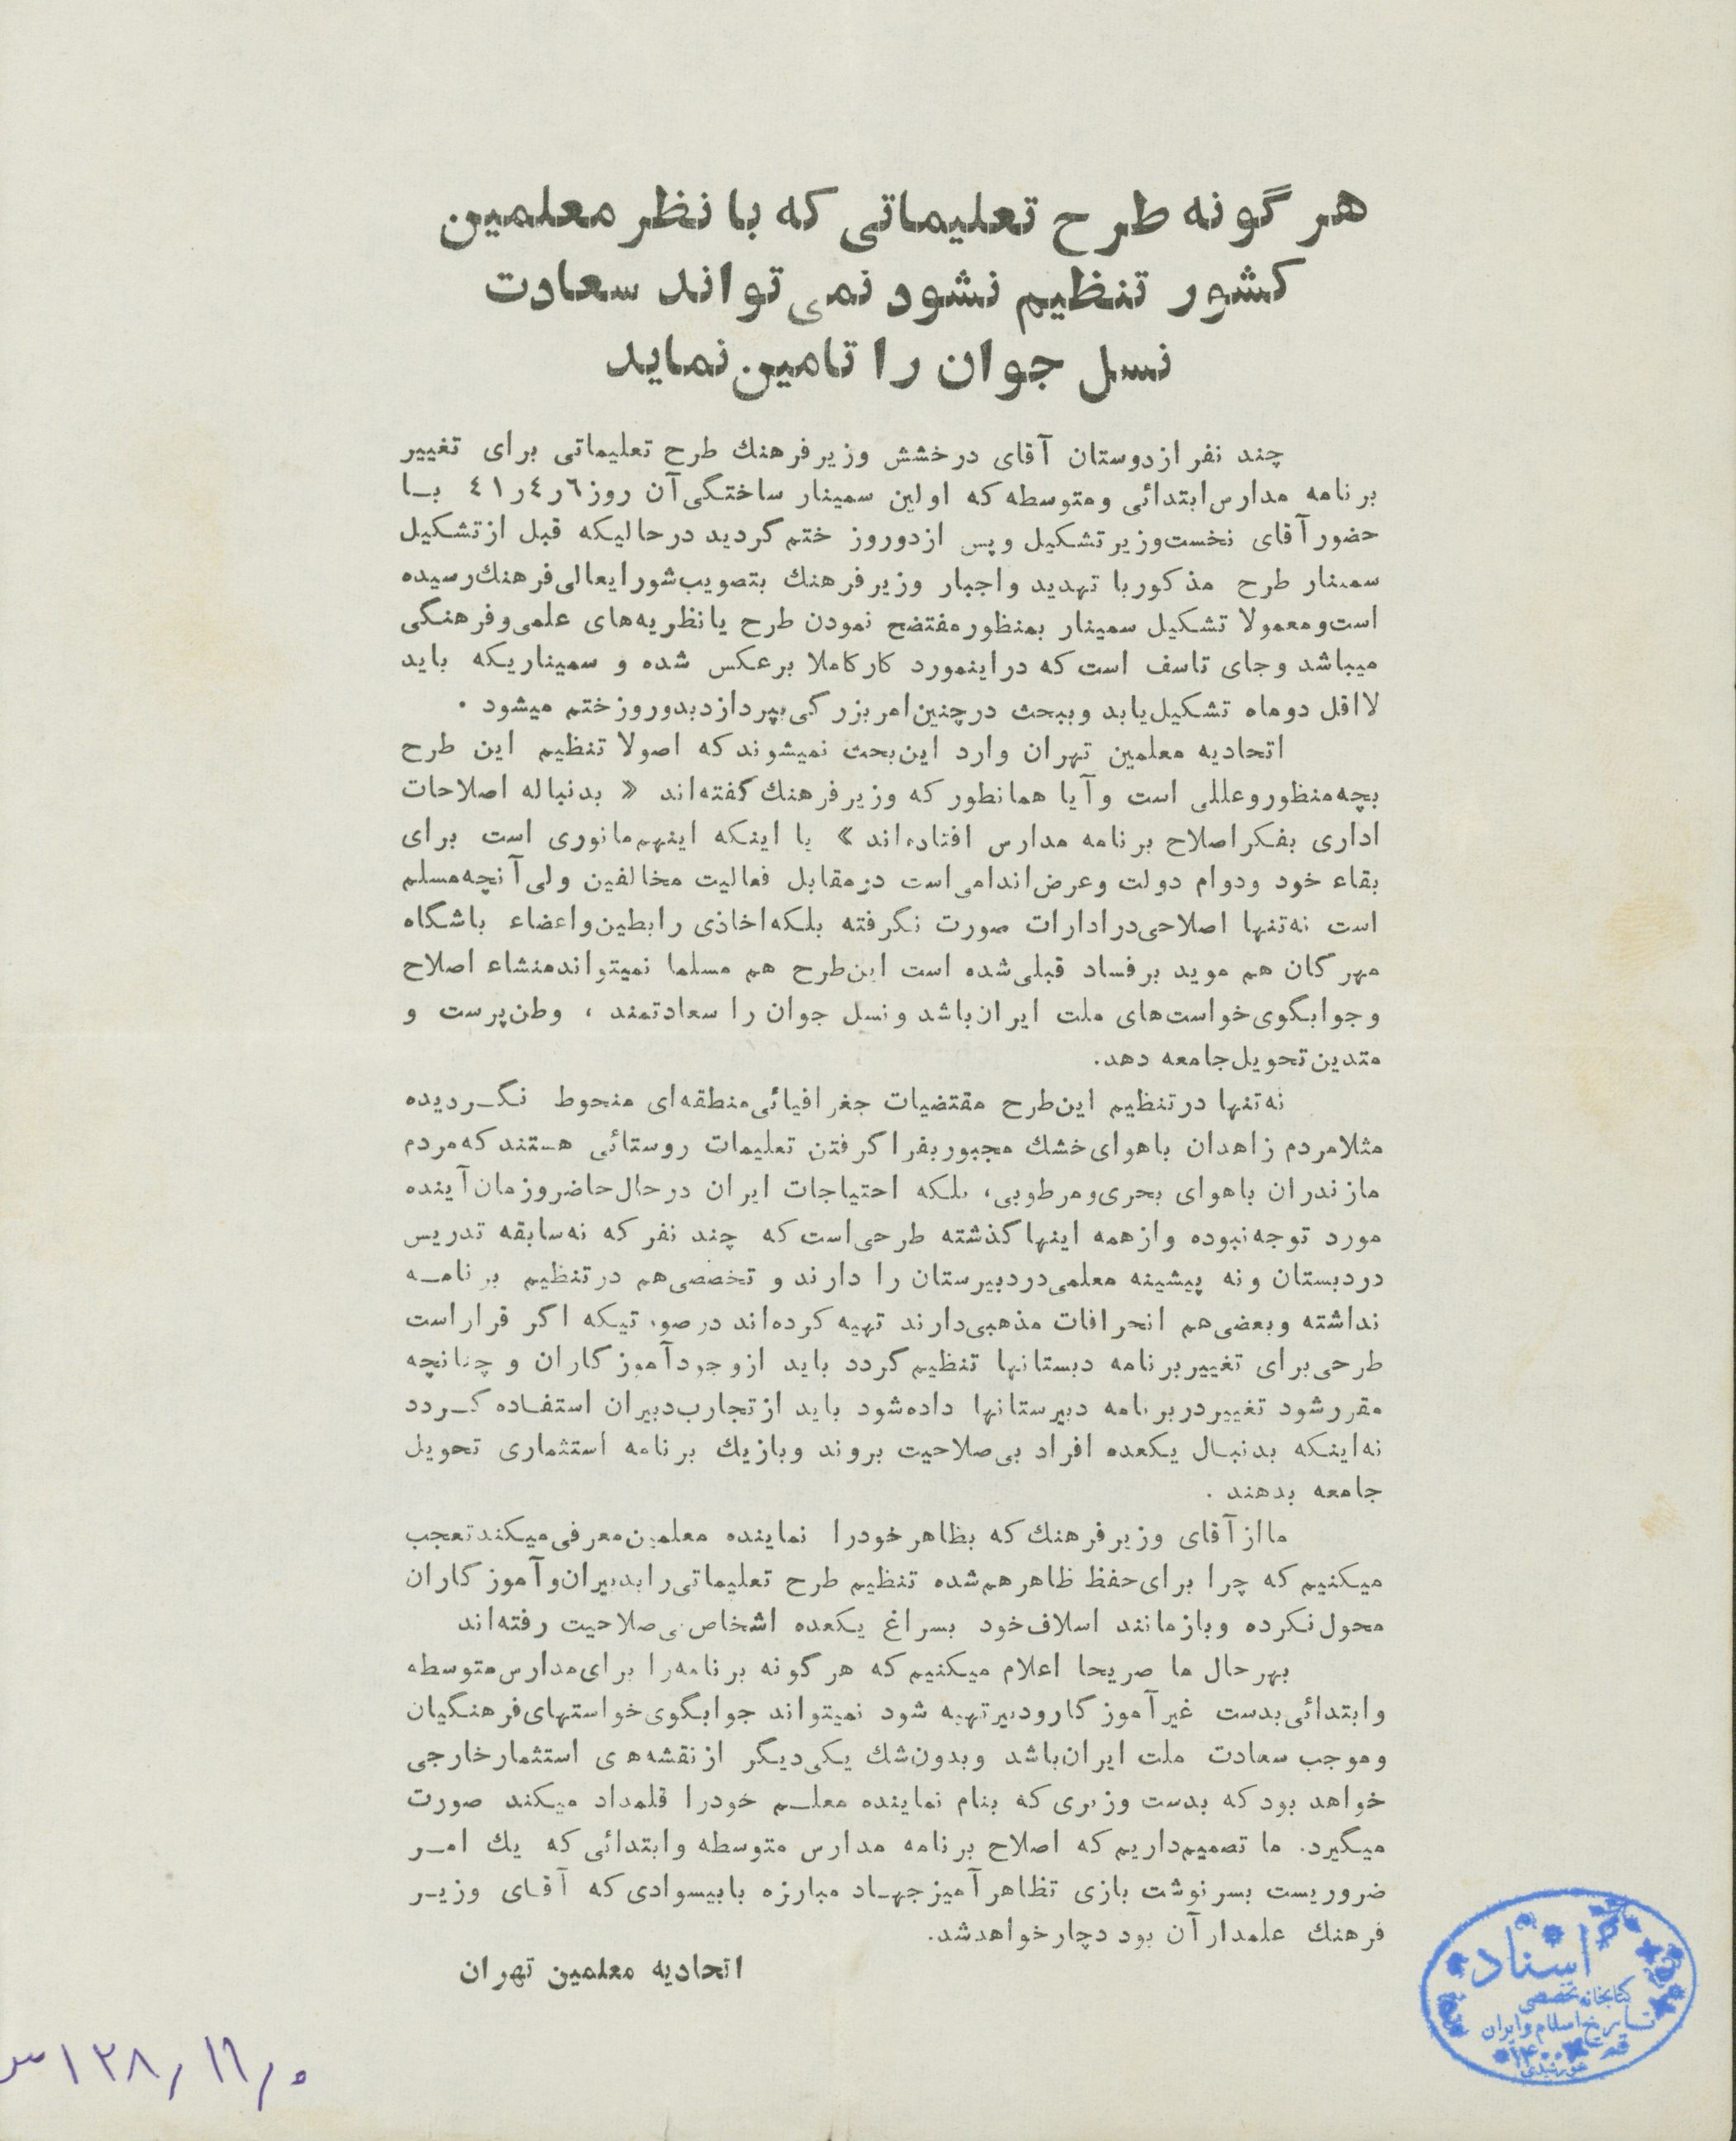 هر گونه طرح تعلیماتی که با نظر معلمین
کشور تنظیم نشود نمی‌تواند سعادت
نسل جوان را تامین نماید
چند نفر از دوستان آقای درخشش وزیر فرهنك طرح تعلیماتی برای تغییر
برنامه مدارس ابتدائی و متوسطه که اولین سمینار ساختگی آن روز ٦ر٤ر٤١ بـا
حضور آقای نخست‌وزیر تشکیل و پس از دو روز ختم گردید درحالیکه قبل از تشکیل
سمینار طرح مذکور با تهدید و اجبار وزیر فرهنك بتصویب شورایعالی فرهنك رسیده
است و معمولا تشکیل سمینار بمنظور مفتضح نمودن طرح یا نظریه‌های علمی و فرهنگی
میباشد و جای تاسف است که در اینمورد کار کاملا برعکس شده و سمیناریکه باید
لااقل دو ماه تشکیل یابد و ببحث در چنین امر بزرگی بپردازد بدو روز ختم میشود .
اتحادیه معلمین تهران وارد این بحث نمیشوند که اصولا تنظیم این طرح
بچه منظور و عللی است و آیا همانطور که وزیر فرهنك گفته‌اند « بدنباله اصلاحات
اداری بفکر اصلاح برنامه مدارس افتاده‌اند » یا اینکه اینهم مانوری است برای
بقاء خود و دوام دولت و عرض اندامی است در مقابل فعالیت مخالفین ولی آنچه مسلم
است نه تنها اصلاحی در ادارات صورت نگرفته بلکه اخاذی رابطین و اعضاء باشگاه
مهرگان هم موید بر فساد قبلی شده است این طرح هم مسلما نمیتواند منشاء اصلاح
و جوابگوی خواست‌های ملت ایران باشد و نسل جوان را سعادتمند ، وطن‌پرست و
متدین تحویل جامعه دهد.
نه تنها در تنظیم این طرح مقتضیات جغرافیائی منطقه‌ای منحوط نگـردیده
مثلا مردم زاهدان با هوای خشك مجبور بفرا گرفتن تعلیمات روستائی هستند که مردم
مازندران با هوای بحری و مرطوبی، بلکه احتیاجات ایران در حال حاضر و زمان آینده
مورد توجه نبوده و از همه اینها گذشته طرحی است که چند نفر که نه سابقه تدریس
در دبستان و نه پیشینه معلمی در دبیرستان را دارند و تخصصی هم در تنظیم برنامـه
نداشته و بعضی هم انحرافات مذهبی دارند تهیه کرده‌اند در صورتیکه اگر قرار است
طرحی برای تغییر برنامه دبستانها تنظیم گردد باید از وجود آموزگاران و چنانچه
مقرر شود تغییر در برنامه دبیرستانها داده شود باید از تجارب دبیران استفـاده گـردد
نه اینکه بدنبـال یکعده افراد بی صلاحیت بروند و باز یك برنامه استثماری تحویل
جامعه بدهند .
ما از آقای وزیر فرهنك که بظاهر خود را نماینده معلمین معرفی میکند تعجب
میکنیم که چرا برای حفظ ظاهر هم شده تنظیم طرح تعلیماتی را بدبیران و آموزگاران
محول نکرده و باز مانند اسلاف خود بسراغ یکعده اشخاص بی صلاحیت رفته‌اند
بهر حال ما صریحا اعلام میکنیم که هر گونه برنامه را برای مدارس متوسطه
و ابتدائی بدست غیر آموزگار و دبیر تهیه شود نمیتواند جوابگوی خواستهای فرهنگیان
و موجب سعادت ملت ایران باشد و بدون شك یکی دیگر از نقشه‌های استثمار خارجی
خواهد بود که بدست وزیری که بنام نماینده معلـم خود را قلمداد میکند صورت
میگیرد. ما تصمیم داریم که اصلاح برنامه مدارس متوسطه و ابتدائی که یك امـر
ضروریست بسرنوشت بازی تظاهر آمیز جهـاد مبارزه با بیسوادی که آقـای وزیـر
فرهنك علمدار آن بود دچار خواهد شد.
اتحادیه معلمین تهران
اسناد
کتابخانه تخصصی
تاریخ اسلام و ایران
قم
۱۴۰۰
خورشیدی